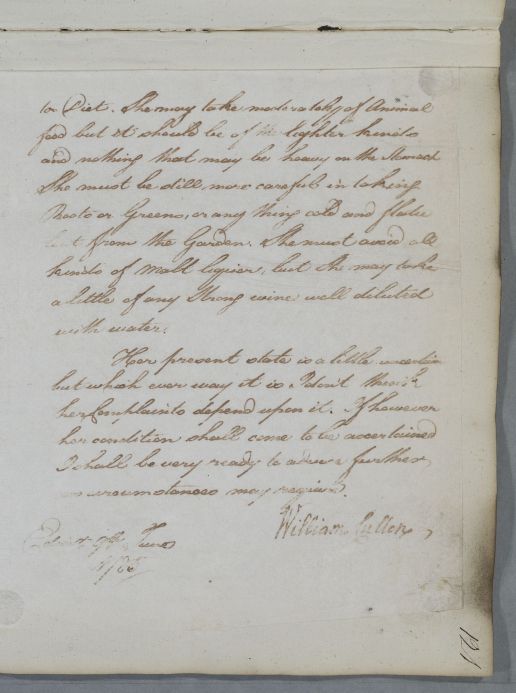 to Diet. She may take moderately of Animal
food but it should be of the lighter kinds
and nothing that may be heavy on the Stomach
She must be still more careful in taking
Roots or Greens, or any thing cold and flatu
lent from the Garden. She must avoid all
kinds of Malt liquior, but She may take
a little of any Strong wine well diluted
with water.
Her present state is a little uncertain
but which ever way it is I don't think
her Complaints depend upon it. If however
her condition shall come to be ascertained
I shall be very ready to advise further
as circumstances may require.
William Cullen
Edinr. 9th June
121